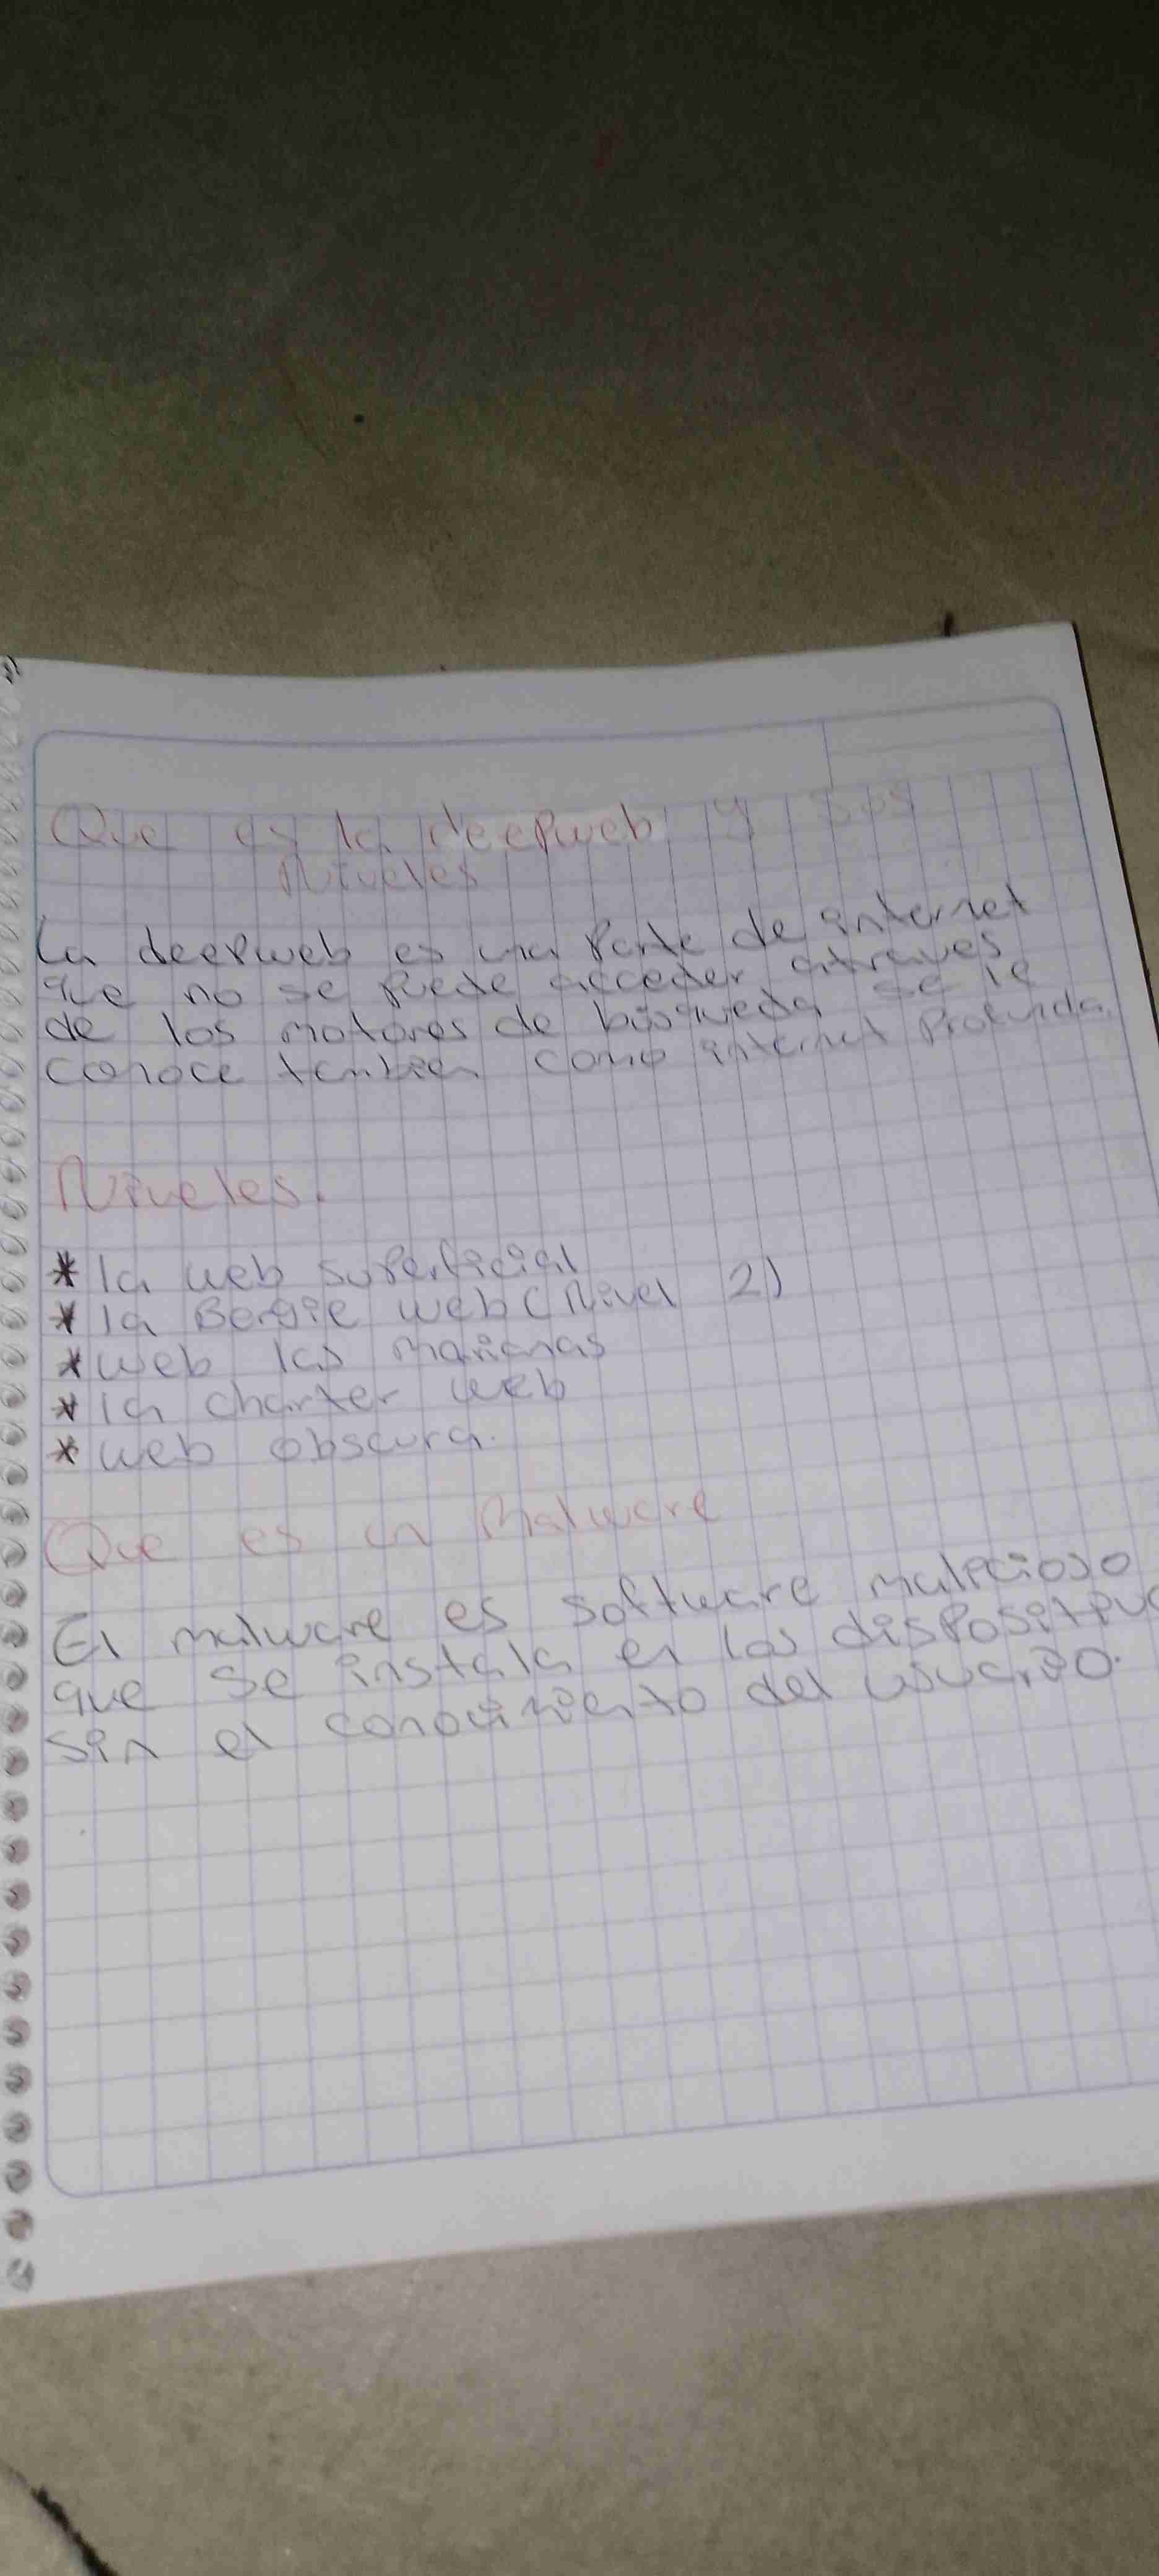 Que es la deepweb y sus
Niveles
La deepweb es una Parte de internet
que no se Puede acceder atraves
de los motores de búsqueda se le
conoce tambien como internet Profunda
Niveles.
* la web superficial
* la Bergie web (Nivel 2)
* web las marianas
* la charter web
* web obscura.
Que es un Malware
El malware es software malicioso
que se instala en los dispositivo
sin el conocimiento del usuario.